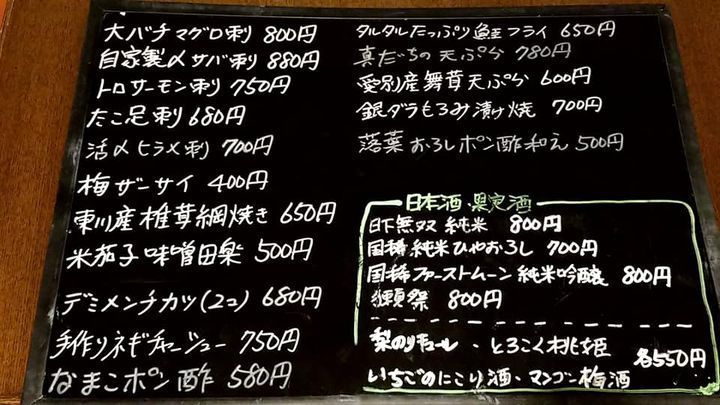 大バチマグロ刺 800円
自家製〆サバ刺 880円
トロサーモン刺 750円
たこ足刺 680円
活〆ヒラメ刺 700円
梅ザーサイ 400円
東川産椎茸網焼き 650円
米茄子味噌田楽 500円
デミメンチカツ(2コ) 680円
手作りネギチャーシュー 750円
なまこポン酢 580円
タルタルたっぷり鮭フライ 650円
真だちの天ぷら 780円
愛別産舞茸天ぷら 600円
銀ダラもろみ漬け焼 700円
落葉おろしポン酢和え 500円
日本酒・果実酒
日下無双 純米 800円
国稀 純米ひやおろし 700円
国稀ファーストムーン 純米吟醸 800円
獺祭 800円
梨のリキュール・とろこく桃姫 各550円
いちごのにごり酒、マンゴー梅酒